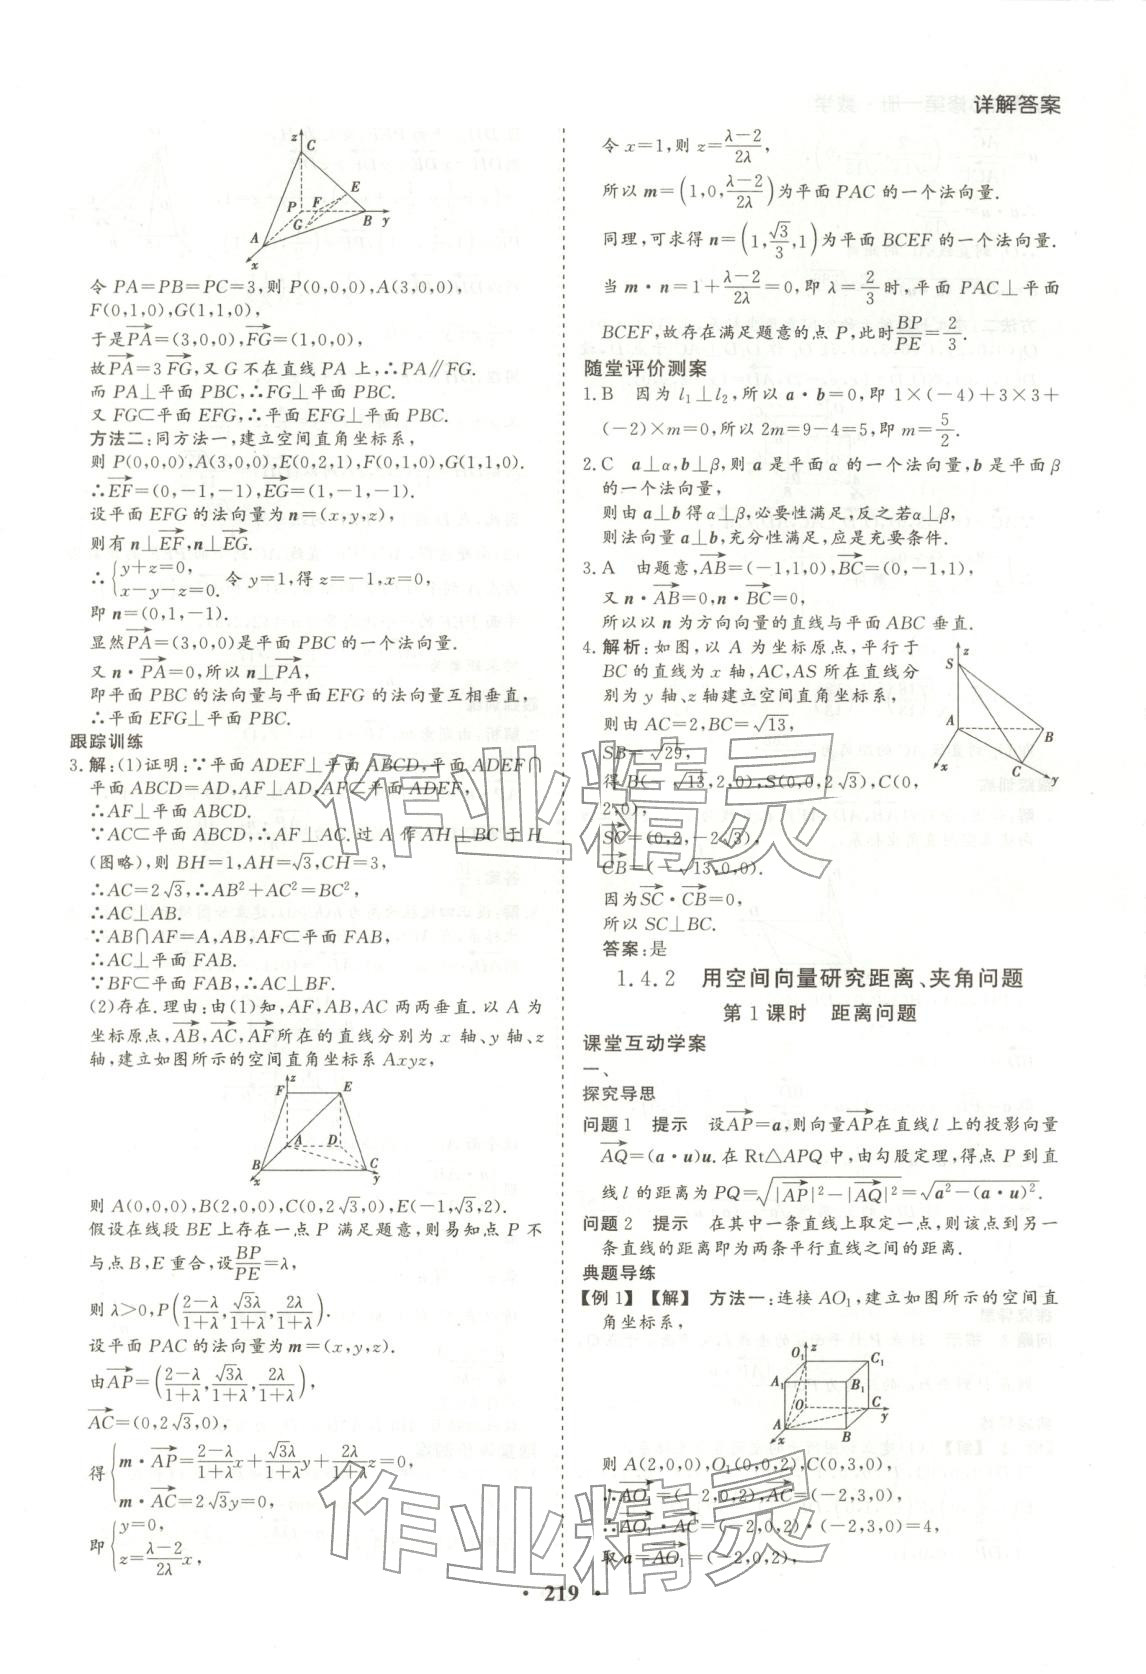 详解答案
令 PA=PB=PC=3,则 P(0,0,0),A(3,0,0),
F(0,1,0),G(1,1,0),
于是$\overrightarrow{PA}$=(3,0,0),$\overrightarrow{FG}$=(1,0,0),
故$\overrightarrow{PA}$=3$\overrightarrow{FG}$,又 G 不在直线 PA 上,∴PA∥FG.
而 PA⊥平面 PBC,∴FG⊥平面 PBC.
又 FG⊂平面 EFG,∴平面 EFG⊥平面 PBC.
方法二:同方法一,建立空间直角坐标系,
则 P(0,0,0),A(3,0,0),E(0,2,1),F(0,1,0),G(1,1,0).
∴$\overrightarrow{EF}$=(0,-1,-1),$\overrightarrow{EG}$=(1,-1,-1).
设平面 EFG 的法向量为 n=(x,y,z),
则有 n⊥$\overrightarrow{EF}$,n⊥$\overrightarrow{EG}$.
∴$\begin{cases}y+z=0,\\x-y-z=0.\end{cases}$ 令 y=1,得 z=-1,x=0,
即 n=(0,1,-1).
显然$\overrightarrow{PA}$=(3,0,0)是平面 PBC 的一个法向量.
又 n·$\overrightarrow{PA}$=0,所以 n⊥$\overrightarrow{PA}$,
即平面 PBC 的法向量与平面 EFG 的法向量互相垂直,
∴平面 EFG⊥平面 PBC.
跟踪训练
3.解:(1)证明:∵平面 ADEF⊥平面 ABCD,平面 ADEF∩
平面 ABCD=AD,AF⊥AD,AF⊂平面 ADEF,
∴AF⊥平面 ABCD.
∵AC⊂平面 ABCD,∴AF⊥AC.过 A 作 AH⊥BC 于 H
(图略),则 BH=1,AH=√3,CH=3,
∴AC=2√3,∴AB²+AC²=BC²,
∴AC⊥AB.
∵AB∩AF=A,AB,AF⊂平面 FAB,
∴AC⊥平面 FAB.
∵BF⊂平面 FAB,∴AC⊥BF.
(2)存在.理由:由(1)知,AF,AB,AC 两两垂直.以 A 为
坐标原点,$\overrightarrow{AB}$,$\overrightarrow{AC}$,$\overrightarrow{AF}$所在的直线分别为 x 轴、y 轴、z
轴,建立如图所示的空间直角坐标系 Axyz,
则 A(0,0,0),B(2,0,0),C(0,2√3,0),E(-1,√3,2).
假设在线段 BE 上存在一点 P 满足题意,则易知点 P 不
与点 B,E 重合,设$\frac{BP}{PE}$=λ,
则 λ>0,P$\left(\frac{2-λ}{1+λ},\frac{\sqrt{3}λ}{1+λ},\frac{2λ}{1+λ}\right)$.
设平面 PAC 的法向量为 m=(x,y,z).
由$\overrightarrow{AP}$=$\left(\frac{2-λ}{1+λ},\frac{\sqrt{3}λ}{1+λ},\frac{2λ}{1+λ}\right)$,
$\overrightarrow{AC}$=(0,2√3,0),
得$\begin{cases}m·\overrightarrow{AP}=\frac{2-λ}{1+λ}x+\frac{\sqrt{3}λ}{1+λ}y+\frac{2λ}{1+λ}z=0,\\m·\overrightarrow{AC}=2\sqrt{3}y=0,\end{cases}$
即$\begin{cases}y=0,\\z=\frac{λ-2}{2λ}x,\end{cases}$
令 x=1,则 z=$\frac{λ-2}{2λ}$,
所以 m=$\left(1,0,\frac{λ-2}{2λ}\right)$为平面 PAC 的一个法向量.
同理,可求得 n=$\left(1,\frac{\sqrt{3}}{3},1\right)$为平面 BCEF 的一个法向量.
当 m·n=1+$\frac{λ-2}{2λ}$=0,即 λ=$\frac{2}{3}$时,平面 PAC⊥平面
BCEF,故存在满足题意的点 P,此时$\frac{BP}{PE}$=$\frac{2}{3}$.
随堂评价测案
1.B 因为 l₁⊥l₂,所以 a·b=0,即 1×(-4)+3×3+
(-2)×m=0,所以 2m=9-4=5,即 m=$\frac{5}{2}$.
2.C a⊥α,b⊥β,则 a 是平面 α 的一个法向量,b 是平面 β
的一个法向量,
则由 a⊥b 得 α⊥β,必要性满足,反之若 α⊥β,
则法向量 a⊥b,充分性满足,应是充要条件.
3.A 由题意,$\overrightarrow{AB}$=(-1,1,0),$\overrightarrow{BC}$=(0,-1,1),
又 n·$\overrightarrow{AB}$=0,n·$\overrightarrow{BC}$=0,
所以以 n 为方向向量的直线与平面 ABC 垂直.
4.解析:如图,以 A 为坐标原点,平行于
BC 的直线为 x 轴,AC,AS 所在直线分
别为 y 轴、z 轴建立空间直角坐标系,
则由 AC=2,BC=√13,
SB=√29,
得 B(-√13,2,0),S(0,0,2√3),C(0,
2,0),
$\overrightarrow{SC}$=(0,2,-2√3),
$\overrightarrow{CB}$=(-√13,0,0).
因为$\overrightarrow{SC}$·$\overrightarrow{CB}$=0,
所以 SC⊥BC.
答案:是
1.4.2 用空间向量研究距离、夹角问题
第 1 课时 距离问题
课堂互动学案
一、
探究导思
问题 1 提示 设$\overrightarrow{AP}$=a,则向量$\overrightarrow{AP}$在直线 l 上的投影向量
$\overrightarrow{AQ}$=(a·u)u.在 Rt△APQ 中,由勾股定理,得点 P 到直
线 l 的距离为 PQ=$\sqrt{|\overrightarrow{AP}|^2-|\overrightarrow{AQ}|^2}$=$\sqrt{a^2-(a·u)^2}$.
问题 2 提示 在其中一条直线上取定一点,则该点到另一
条直线的距离即为两条平行直线之间的距离.
典题导练
【例 1】【解】 方法一:连接 AO₁,建立如图所示的空间直
角坐标系,
则 A(2,0,0),O₁(0,0,2),C(0,3,0),
∴$\overrightarrow{AO_1}$=(-2,0,2),$\overrightarrow{AC}$=(-2,3,0),
∴$\overrightarrow{AO_1}$·$\overrightarrow{AC}$=(-2,0,2)·(-2,3,0)=4,
取 a=$\overrightarrow{AO_1}$=(-2,0,2),
· 219 ·
作业精灵
作业精灵